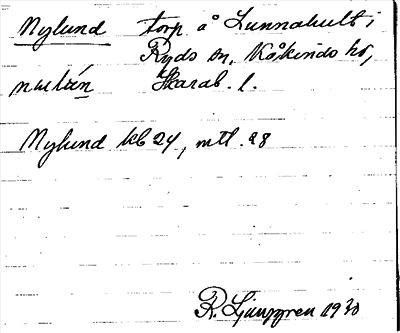 Nylund torp å Lunnahult i
Ryds sn, Kåkinds hd,
Skarab. l.
Nylund kb 24, mtl. 28
R. Ljunggren 1930